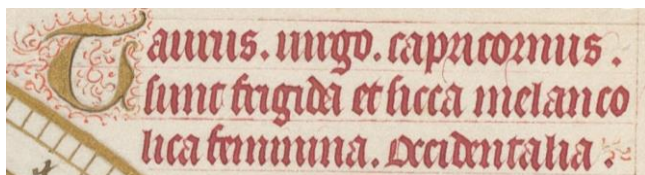 Taurus. uirgo. capricornus.
sunt frigida et sicca melanco
lica feminina. Occidentalia.